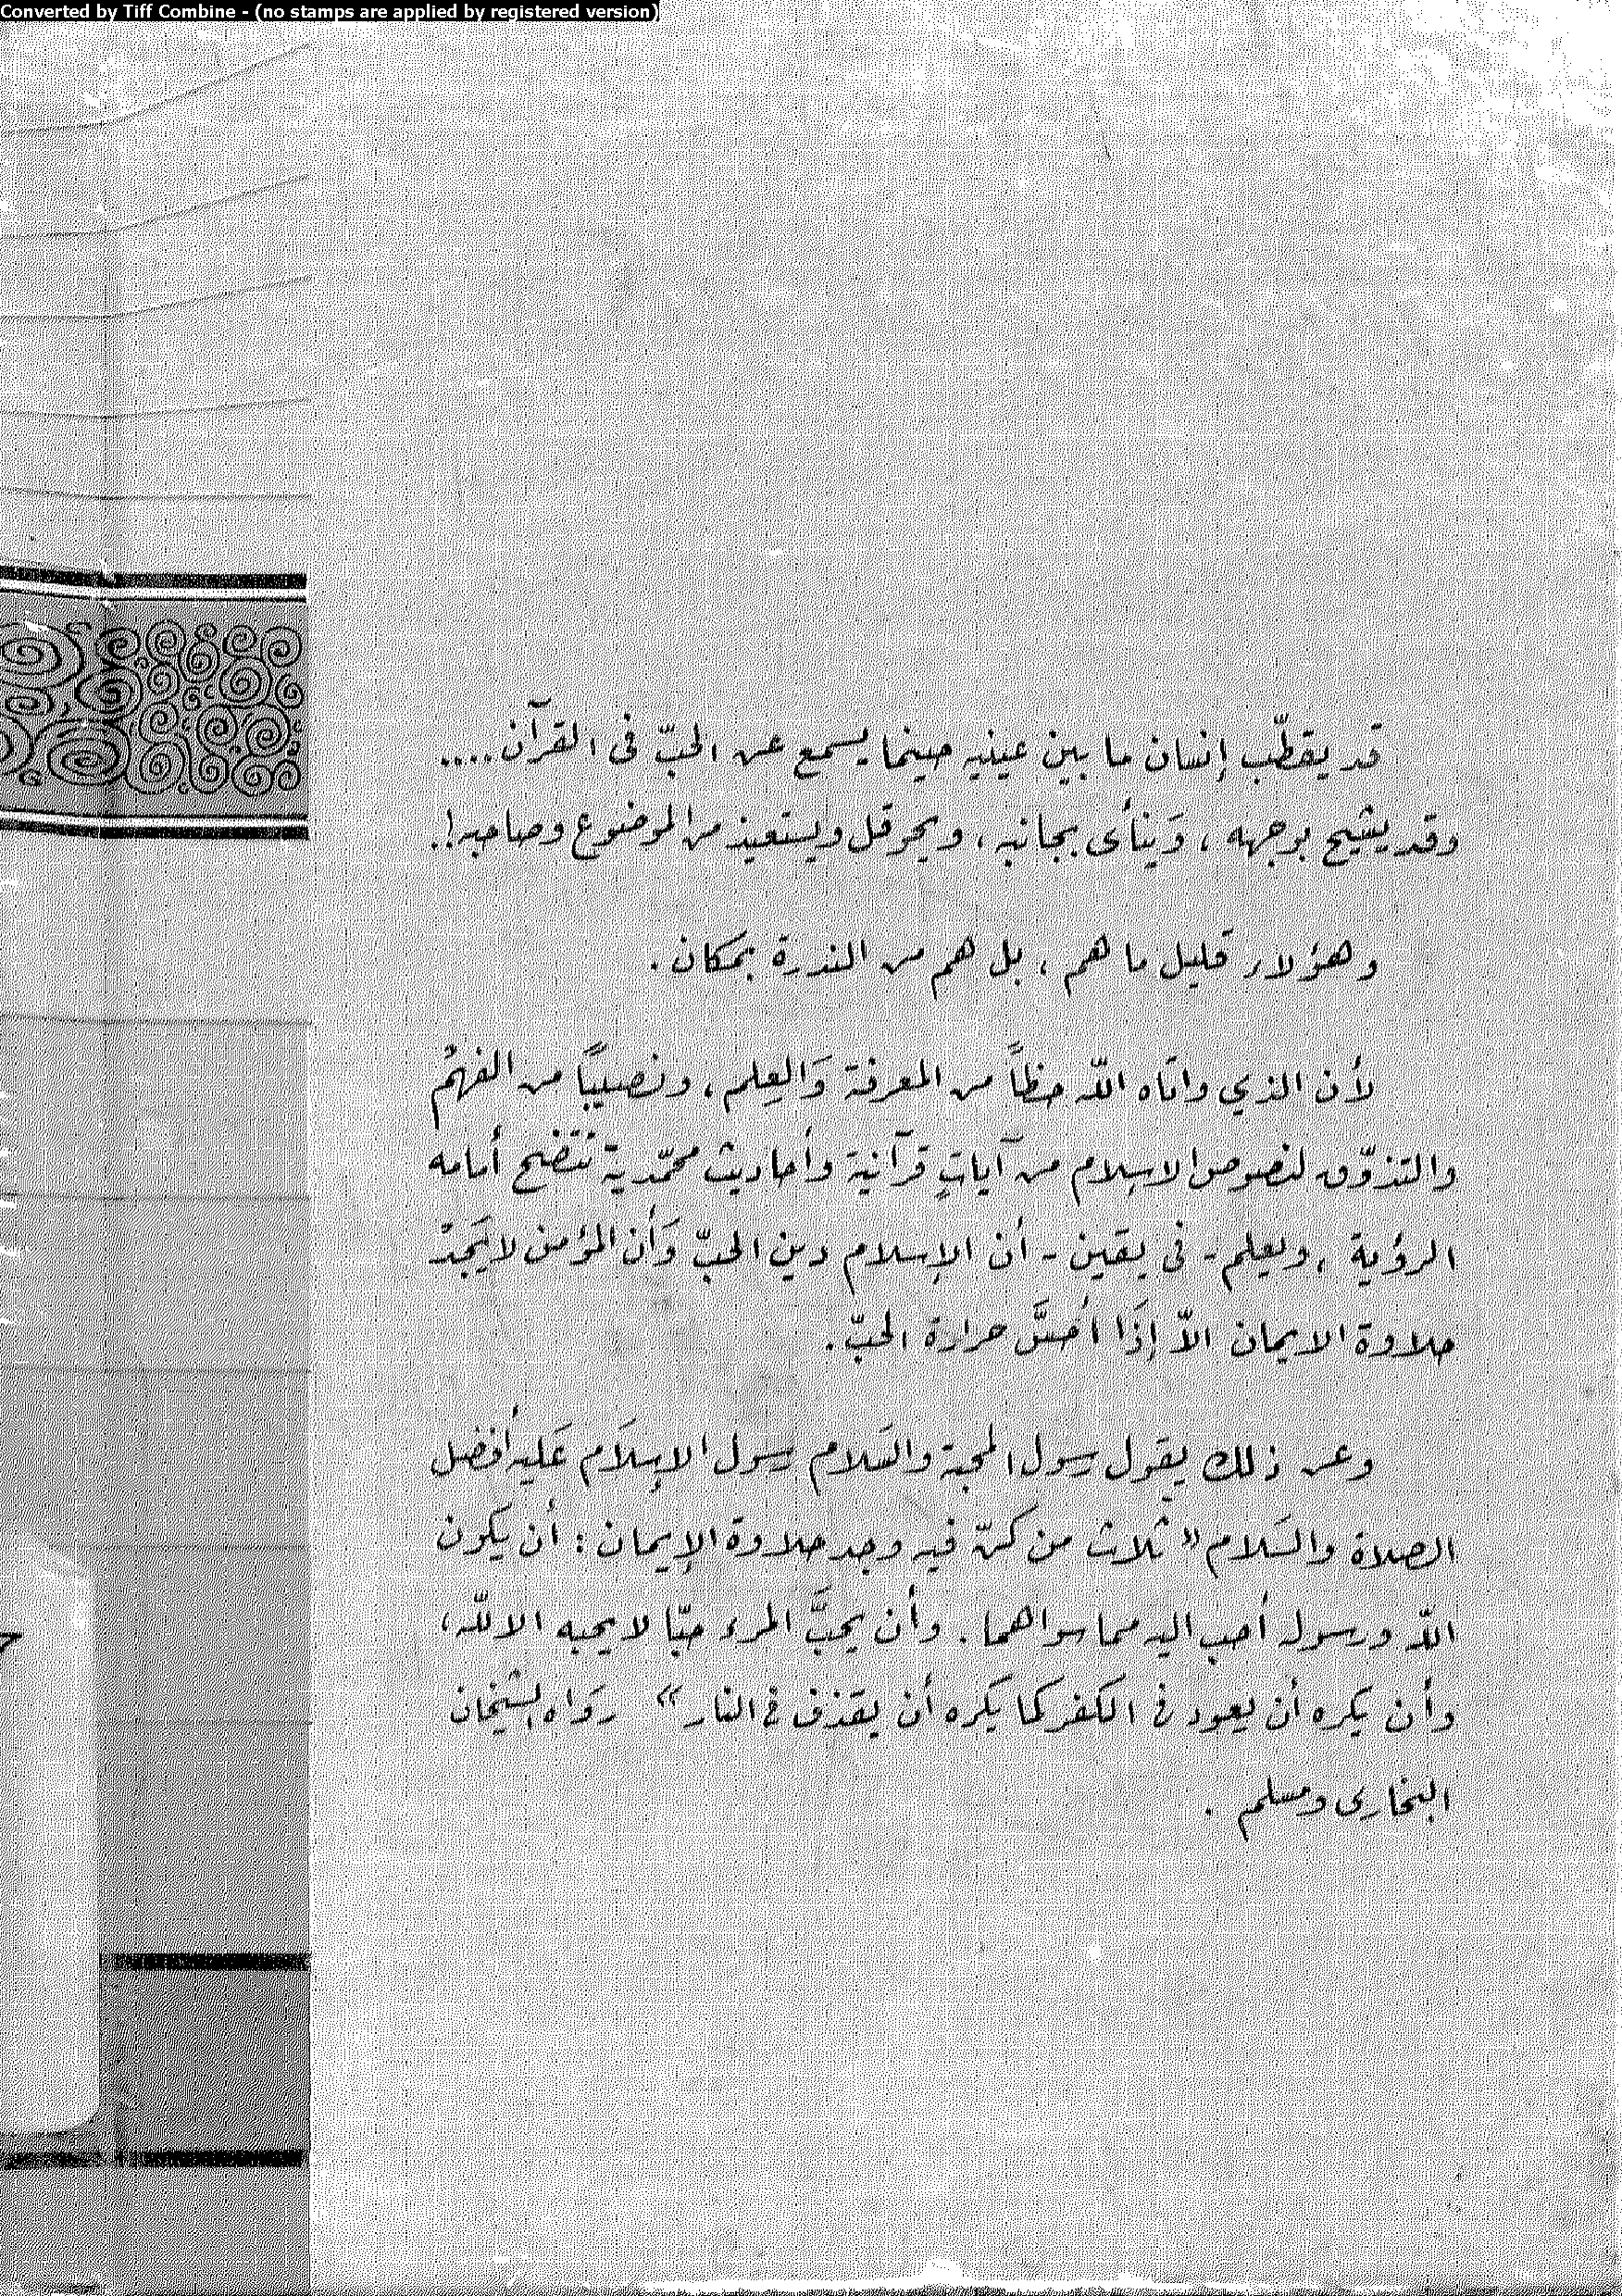 Converted by Tiff Combine - (no stamps are applied by registered version)
قد يقطّب إنسان ما بين عينيه حينما يسمع عن الحبّ في القرآن....
وقد يشيح بوجهه ، وَينأى بجانبه ، ويحوقل ويستعيذ من الموضوع وصاحبه !.
وهؤلاء قليل ما هم ، بل هم من الندرة بمكان .
لأن الذي واتاه اللّه حظاً من المعرفة وَالعِلم ، ونصيبًا من الفهْم
والتذوّق لنصوص الاسِلام من آياتٍ قرآنية وأحاديث محمّدية تتضح أمامه
الرؤية ، ويعلم - في يقين - أن الإسلام دين الحبّ وَأن المؤمن لا يَجدْ
حلاوة الايمان الاّ إذَا أحسَّ حرارة الحبّ .
وعن ذلك يقول رسول المحبة والسَلام رسول الاسِلَام عَليه أفضل
الصلاة والسَلام « ثلاث من كنّ فيه وجد حلاوة الإيمان : أن يكون
اللّه ورسوله أحب اليه مما سواهما . وأن يحبَّ المرء حبّا لا يحبه الا للّه ،
وأن يكره أن يعود في الكفر كما يكره أن يقذف في النار » رَواه الشيخان
البخارى ومسلم .